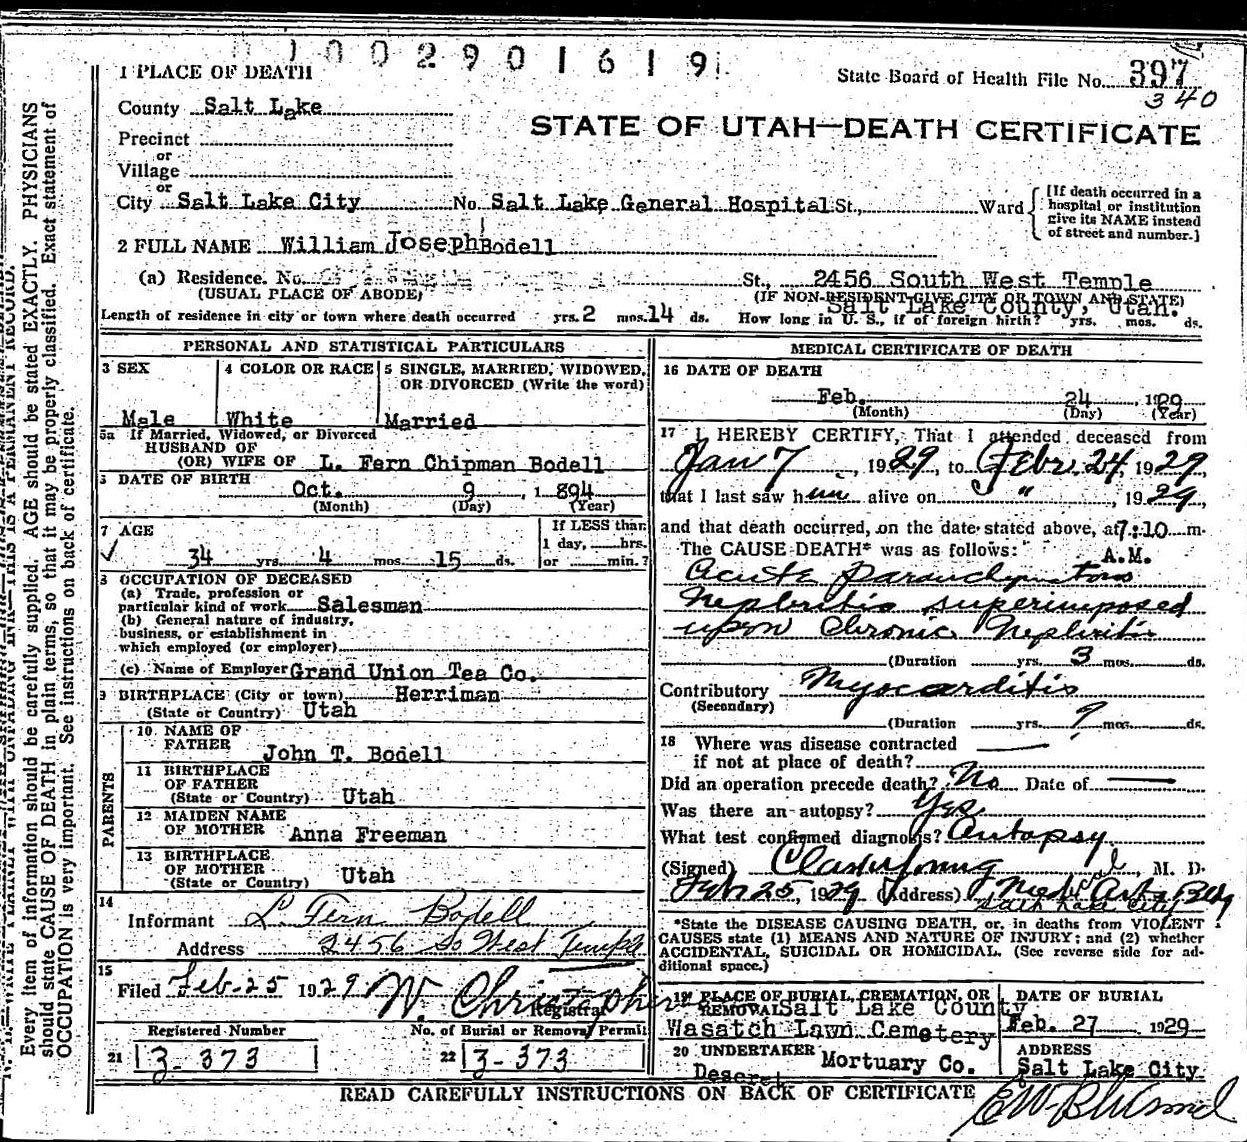 1002901619
State Board of Health File No. 397
340
STATE OF UTAH—DEATH CERTIFICATE
1 PLACE OF DEATH
County Salt Lake
Precinct
or
Village
or
City Salt Lake City No. Salt Lake General Hospital St., Ward
[If death occurred in a hospital or institution give its NAME instead of street and number.]
2 FULL NAME William Joseph Bodell
(a) Residence. No. St., 2456 South West Temple
(USUAL PLACE OF ABODE) (IF NON-RESIDENT GIVE CITY OR TOWN AND STATE)
Salt Lake County, Utah.
Length of residence in city or town where death occurred yrs. 2 mos. 14 ds. How long in U. S., if of foreign birth? yrs. mos. ds.
PERSONAL AND STATISTICAL PARTICULARS
3 SEX
Male
4 COLOR OR RACE
White
5 SINGLE, MARRIED, WIDOWED, OR DIVORCED (Write the word)
Married
5a If Married, Widowed, or Divorced
HUSBAND OF
(OR) WIFE OF L. Fern Chipman Bodell
DATE OF BIRTH
Oct. 9, 1894
(Month) (Day) (Year)
7 AGE
34 yrs. 4 mos. 15 ds.
If LESS than
1 day, hrs.
or min.?
8 OCCUPATION OF DECEASED
(a) Trade, profession or
particular kind of work Salesman
(b) General nature of industry,
business, or establishment in
which employed (or employer)
(c) Name of Employer Grand Union Tea Co.
9 BIRTHPLACE (City or town) Herriman
(State or Country) Utah
PARENTS
10 NAME OF
FATHER John T. Bodell
11 BIRTHPLACE
OF FATHER
(State or Country) Utah
12 MAIDEN NAME
OF MOTHER Anna Freeman
13 BIRTHPLACE
OF MOTHER
(State or Country) Utah
14
Informant L. Fern Bodell
Address 2456 So West Temple
15
Filed Feb-25 1929 W. Christopherson
Registrar
Registered Number No. of Burial or Removal Permit
21 3-373 22 3-373
MEDICAL CERTIFICATE OF DEATH
16 DATE OF DEATH
Feb. 24, 1929
(Month) (Day) (Year)
17 I HEREBY CERTIFY, That I attended deceased from
Jan 7, 1929, to Feb. 24, 1929,
that I last saw him alive on " , 1929
and that death occurred, on the date stated above, at 7:10 m.
The CAUSE DEATH* was as follows: A.M.
Acute Parenchymatous
Nephritis superimposed
upon Chronic Nephritis
(Duration yrs. 3 mos. ds.
Contributory Myocarditis
(Secondary)
(Duration yrs. ? mos. ds.
18 Where was disease contracted
if not at place of death?
Did an operation precede death? No Date of
Was there an autopsy? Yes
What test confirmed diagnosis? Autopsy
(Signed) M. D.
Feb 25, 1929 (Address) Medical Arts Bldg
Salt Lake City
*State the DISEASE CAUSING DEATH, or, in deaths from VIOLENT
CAUSES state (1) MEANS AND NATURE OF INJURY; and (2) whether
ACCIDENTAL, SUICIDAL OR HOMICIDAL. (See reverse side for ad-
ditional space.)
19 PLACE OF BURIAL, CREMATION, OR
REMOVAL Salt Lake County
Wasatch Lawn Cemetery
DATE OF BURIAL
Feb. 27 1929
20 UNDERTAKER Mortuary Co.
Deseret
ADDRESS
Salt Lake City
READ CAREFULLY INSTRUCTIONS ON BACK OF CERTIFICATE
Every item of information should be carefully supplied. AGE should be stated EXACTLY. PHYSICIANS
should state CAUSE OF DEATH in plain terms, so that it may be properly classified. Exact statement of
OCCUPATION is very important. See instructions on back of certificate.